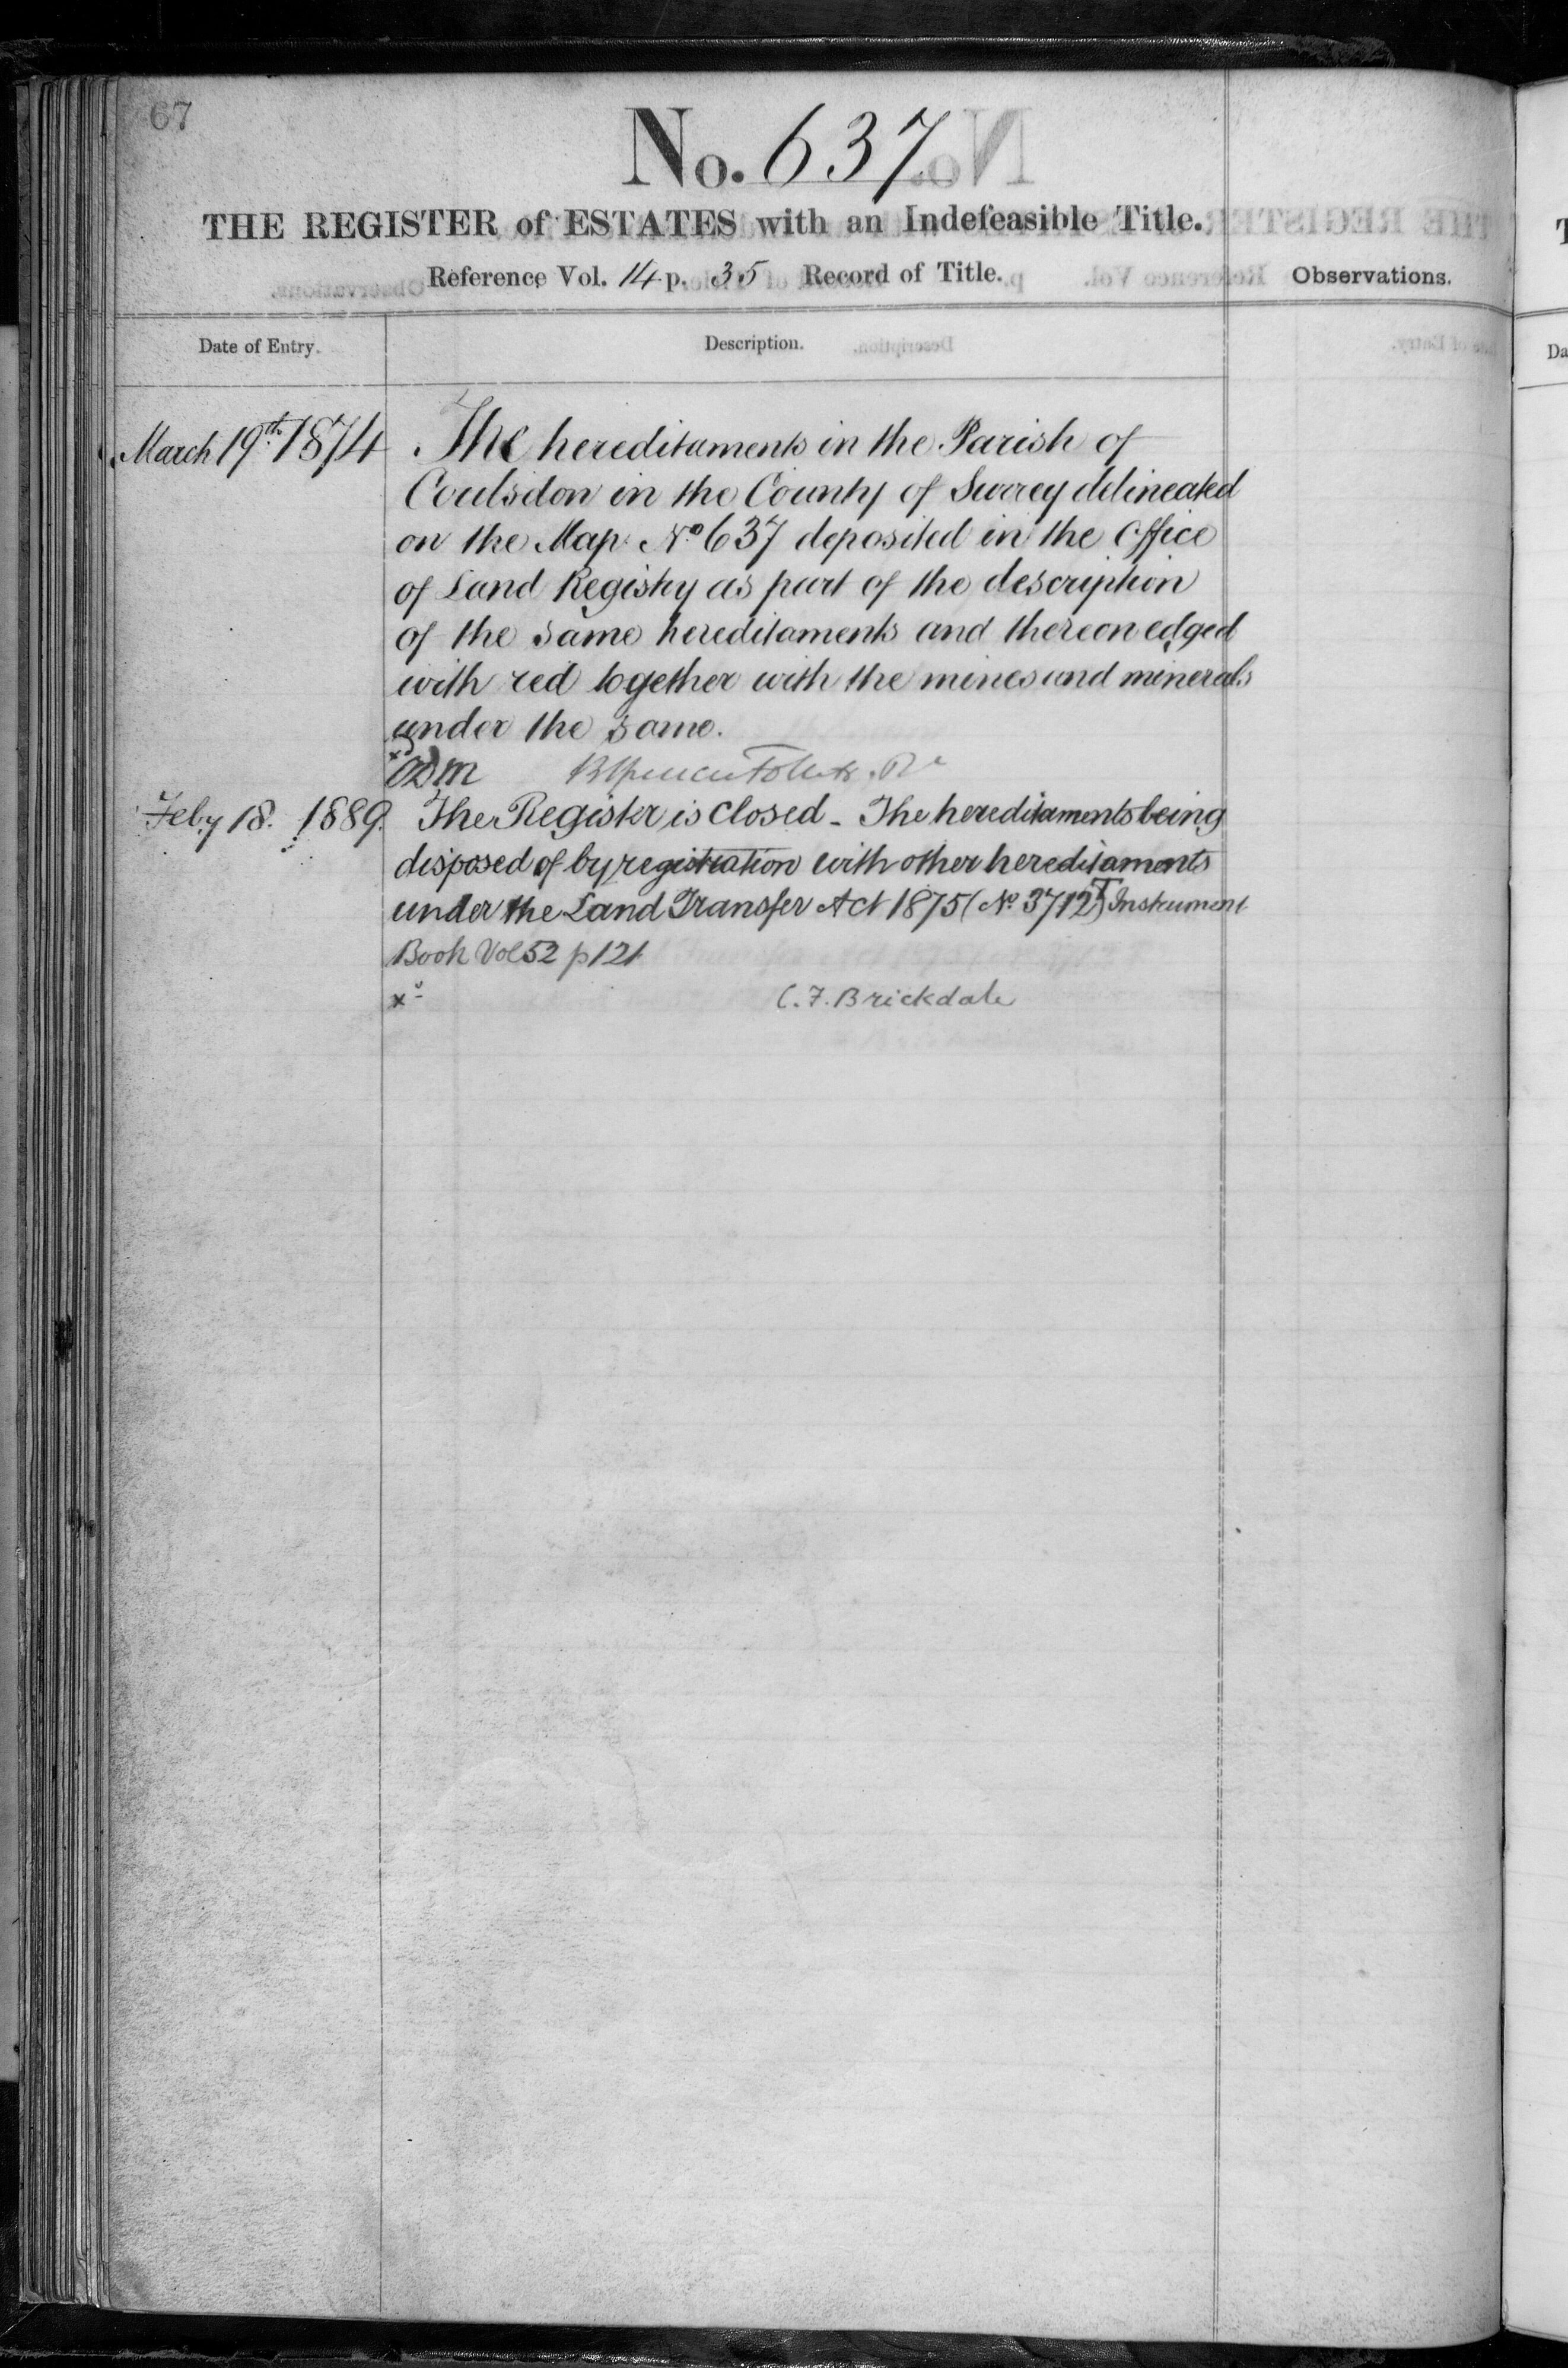 67
No. 637
THE REGISTER of ESTATES with an Indefeasible Title.
Reference Vol. 14 p. 35 Record of Title.
Observations.
Date of Entry.
Description.
March 19th 1874
The hereditaments in the Parish of
Coulsdon in the County of Surrey delineated
on the Map No 637 deposited in the Office
of Land Registry as part of the description
of the same hereditaments and thereon edged
with red together with the mines and minerals
under the same.
Feby 18. 1889.
The Register is closed - The hereditaments being
disposed of by registration with other hereditaments
under the Land Transfer Act 1875 (No. 3712) Instrument
Book Vol 52 p 121
C. F. Brickdale